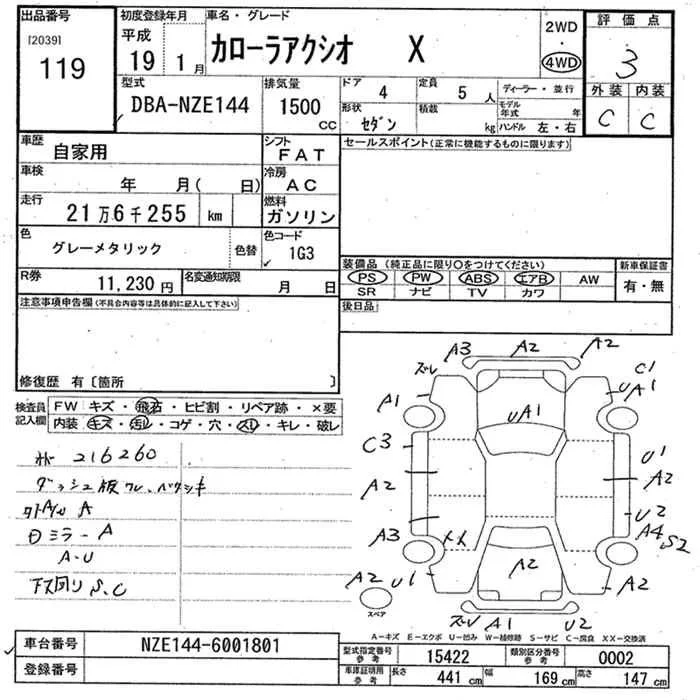 出品番号
[2039]
119
初度登録年月
平成
19 1 月
車名・グレード
カローラアクシオ X
2WD
・
4WD
評価点
3
外装 内装
C C
型式
DBA-NZE144
排気量
1500
CC
ドア 4
定員 5 人
形状 セダン
積載 kg
ディーラー・並行
モデル年式 年
ハンドル 左・右
車歴
自家用
シフト
FAT
車検
年 月( 日)
冷房
AC
走行
21万6千255 km
燃料
ガソリン
色
グレーメタリック
色替
色コード
1G3
R券
11,230円
名変通知期限
月 日
セールスポイント(正常に機能するものに限ります)
装備品 (純正品に限り○をつけてください)
PS PW ABS エアB AW
SR ナビ TV カワ
新車保証書
有・無
後日品
注意事項申告欄(不具合内容等は具体的に記入して下さい)
修復歴 有〔箇所 〕
検査員
記入欄
FW キズ・飛石・ヒビ割・リペア跡・×要
内装 キズ・汚レ・コゲ・穴・スレ・キレ・破レ
216260
ダッシュ板ワレ、
ミラーA
A-U
下回りS.C
ズレ A3 A2 A2
C1
UA1
A1
UA1
C3
U1
A2
A2
U2
A3
A4
S2
A2
U1
A2
スペア
ズレ A1 U2
A-キズ E-エクボ U-凹み W-補修跡 S-サビ C-腐食 XX-交換済
車台番号
NZE144-6001801
登録番号
型式指定番号
参考
15422
類別区分番号
参考
0002
車庫証明用
参考
長さ 441 cm
幅 169 cm
高さ 147 cm